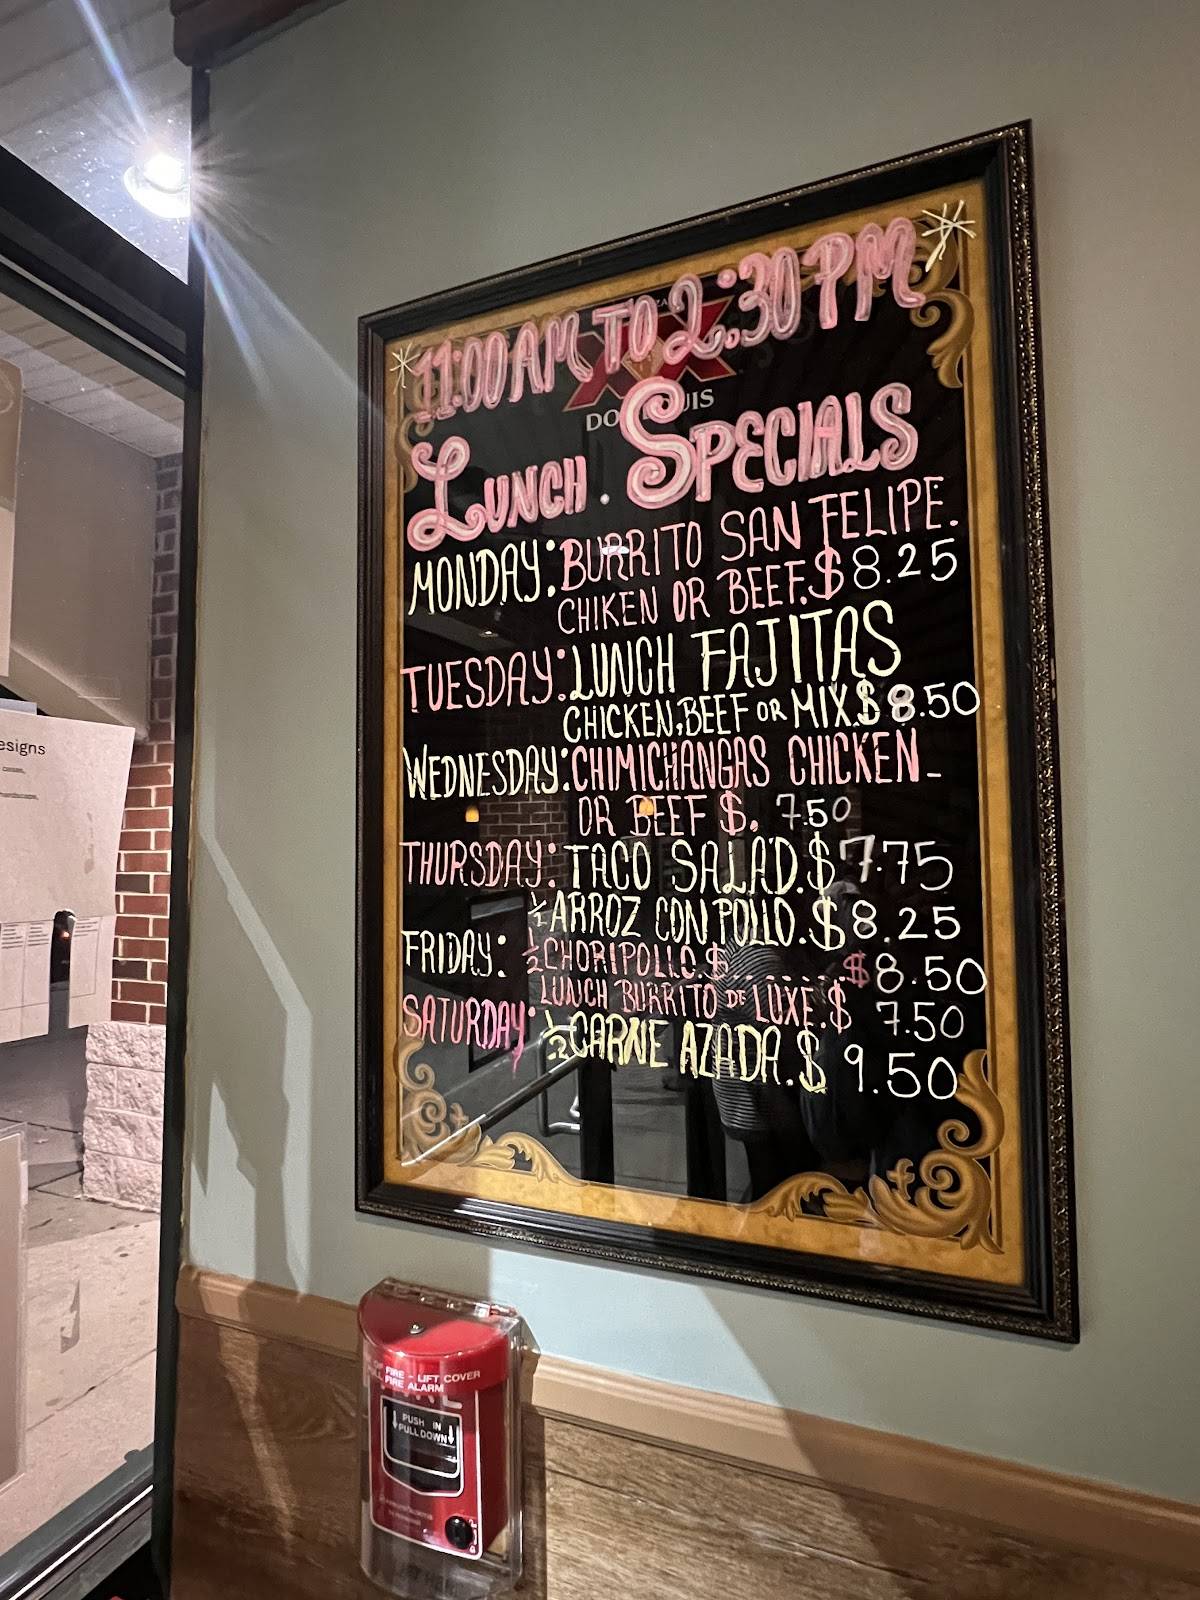 11:00AM TO 2:30PM
XX
LUNCH. SPECIALS
MONDAY: BURRITO SAN FELIPE.
CHIKEN OR BEEF.$8.25
TUESDAY: LUNCH FAJITAS
CHICKEN, BEEF OR MIX.$8.50
WEDNESDAY: CHIMICHANGAS CHICKEN-
OR BEEF $. 7.50
THURSDAY: TACO SALAD.$7.75
½ ARROZ CON POLLO.$8.25
FRIDAY: ½ CHORIPOLLO.$..........$8.50
LUNCH BURRITO DE LUXE.$ 7.50
SATURDAY: ½ CARNE AZADA.$ 9.50
esigns
FIRE - LIFT COVER
FIRE ALARM
PUSH IN
PULL DOWN